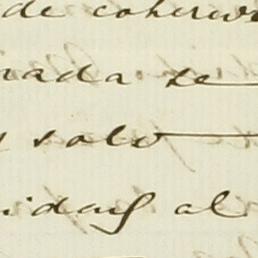 de coheren
nada se
solo
idas al